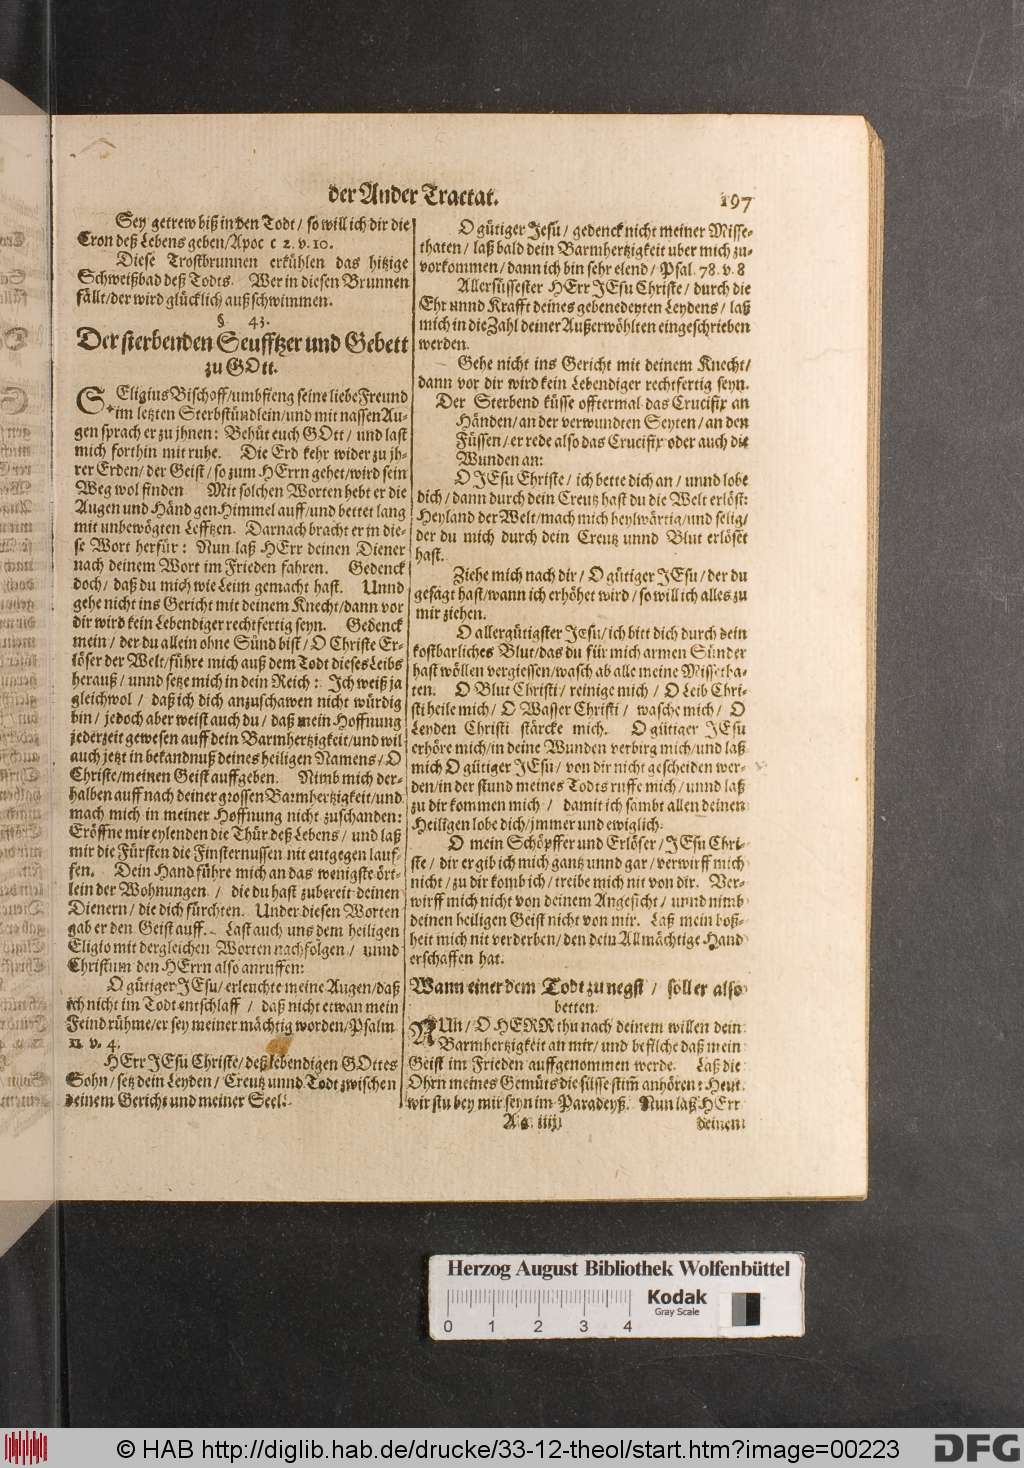 der Ander Tractat.
197
Sey getrew biß in den Todt / so will ich dir die
Cron deß Lebens geben / Apoc c 2. v. 10.
Diese Trostbrunnen erkühlen das hitzige
Schweißbad deß Todts. Wer in diesen Brunnen
fällt / der wird glücklich außschwimmen.
§ 43.
Der sterbenden Seufftzer und Gebett
zu GOtt.
S Eligius Bischoff / umbfieng seine liebe Freund
im letzten Sterbstündlein / und mit nassen Au-
gen sprach er zu jhnen: Behüt euch GOtt / und last
mich forthin mit ruhe. Die Erd kehr wider zu jh-
rer Erden / der Geist / so zum HErrn gehet / wird sein
Weg wol finden Mit solchen Worten hebt er die
Augen und Händ gen Himmel auff / und bettet lang
mit unbewögten Lefftzen. Darnach bracht er in die-
se Wort herfür: Nun laß HErr deinen Diener
nach deinem Wort im Frieden fahren. Gedenck
doch / daß du mich wie Leim gemacht hast. Unnd
gehe nicht ins Gericht mit deinem Knecht / dann vor
dir wird kein Lebendiger rechtfertig seyn. Gedenck
mein / der du allein ohne Sünd bist / O Christe Er-
löser der Welt / führe mich auß dem Todt dieses Leibs
herauß / unnd setze mich in dein Reich: Ich weiß ja
gleichwol / daß ich dich anzuschawen nicht würdig
bin / jedoch aber weist auch du / daß mein Hoffnung
jederzeit gewesen auff dein Barmhertzigkeit / und wil
auch jetzt in bekandnuß deines heiligen Namens / O
Christe / meinen Geist auffgeben. Nimb mich der-
halben auff nach deiner grossen Barmhertzigkeit / und
mach mich in meiner Hoffnung nicht zuschanden:
Eröffne mir eylenden die Thür deß Lebens / und laß
mir die Fürsten die Finsternussen nit entgegen lauf-
fen. Dein Hand führe mich an das wenigste ört-
lein der Wohnungen / die du hast zubereit deinen
Dienern / die dich fürchten. Under diesen Worten
gab er den Geist auff. Last auch uns dem heiligen
Eligio mit dergleichen Worten nachfolgen / unnd
Christum den HErrn also anruffen:
O gütiger JEsu / erleuchte meine Augen / daß
ich nicht im Todt entschlaff / daß nicht etwan mein
Feind rühme / er sey meiner mächtig worden / Psalm
v. 4.
HErr JEsu Christe / deß lebendigen GOttes
Sohn / setz dein Leyden / Creutz unnd Todt zwischen
deinem Gericht und meiner Seel.
O gütiger Jesu / gedenck nicht meiner Misse-
thaten / laß bald dein Barmhertzigkeit uber mich zu-
vorkommen / dann ich bin sehr elend / Psal. 78. v. 8
Allersüssester HErr JEsu Christe / durch die
Ehr unnd Krafft deines gebenedeyten Leydens / laß
mich in die Zahl deiner Außerwöhlten eingeschrieben
werden.
Gehe nicht ins Gericht mit deinem Knecht /
dann vor dir wird kein Lebendiger rechtfertig seyn.
Der Sterbend küsse offtermal das Crucifix an
Händen / an der verwundten Seyten / an den
Füssen / er rede also das Crucifix oder auch die
Wunden an:
O JEsu Christe / ich bette dich an / unnd lobe
dich / dann durch dein Creutz hast du die Welt erlöst:
Heyland der Welt / mach mich heylwärtig / und selig /
der du mich durch dein Creutz unnd Blut erlöset
hast.
Ziehe mich nach dir / O gütiger JEsu / der du
gesagt hast / wann ich erhöhet wird / so will ich alles zu
mir ziehen.
O allergütigster JEsu / ich bitt dich durch dein
kostbarliches Blut / das du für mich armen Sünder
hast wöllen vergiessen / wasch ab alle meine Missetha-
ten. O Blut Christi / reinige mich / O Leib Chri-
sti heile mich / O Wasser Christi / wasche mich / O
Leyden Christi stärcke mich. O gütiger JEsu
erhöre mich / in deine Wunden verbirg mich / und laß
mich O gütiger JEsu / von dir nicht gescheiden wer-
den / in der stund meines Todts ruffe mich / unnd laß
zu dir kommen mich / damit ich sambt allen deinen
Heiligen lobe dich / jmmer und ewiglich.
O mein Schöpffer und Erlöser / JEsu Chri-
ste / dir ergib ich mich gantz unnd gar / verwirff mich
nicht / zu dir komb ich / treibe mich nit von dir. Ver-
wirff mich nicht von deinem Angesicht / unnd nimb
deinen heiligen Geist nicht von mir. Laß mein boß-
heit mich nit verderben / den dein Allmächtige Hand
erschaffen hat.
Wann einer dem Todt zu negst / soll er also
betten.
NUn / O HERR thu nach deinem willen dein
Barmhertzigkeit an mir / und befilche daß mein
Geist im Frieden auffgenommen werde. Laß die
Ohrn meines Gemüts die süsse stim̃ anhören: Heut
wirstu bey mir seyn im Paradeyß. Nun laß HErr
Aa iiij
deinen
Herzog August Bibliothek Wolfenbüttel
0 1 2 3 4
Kodak
Gray Scale
© HAB http://diglib.hab.de/drucke/33-12-theol/start.htm?image=00223
DFG